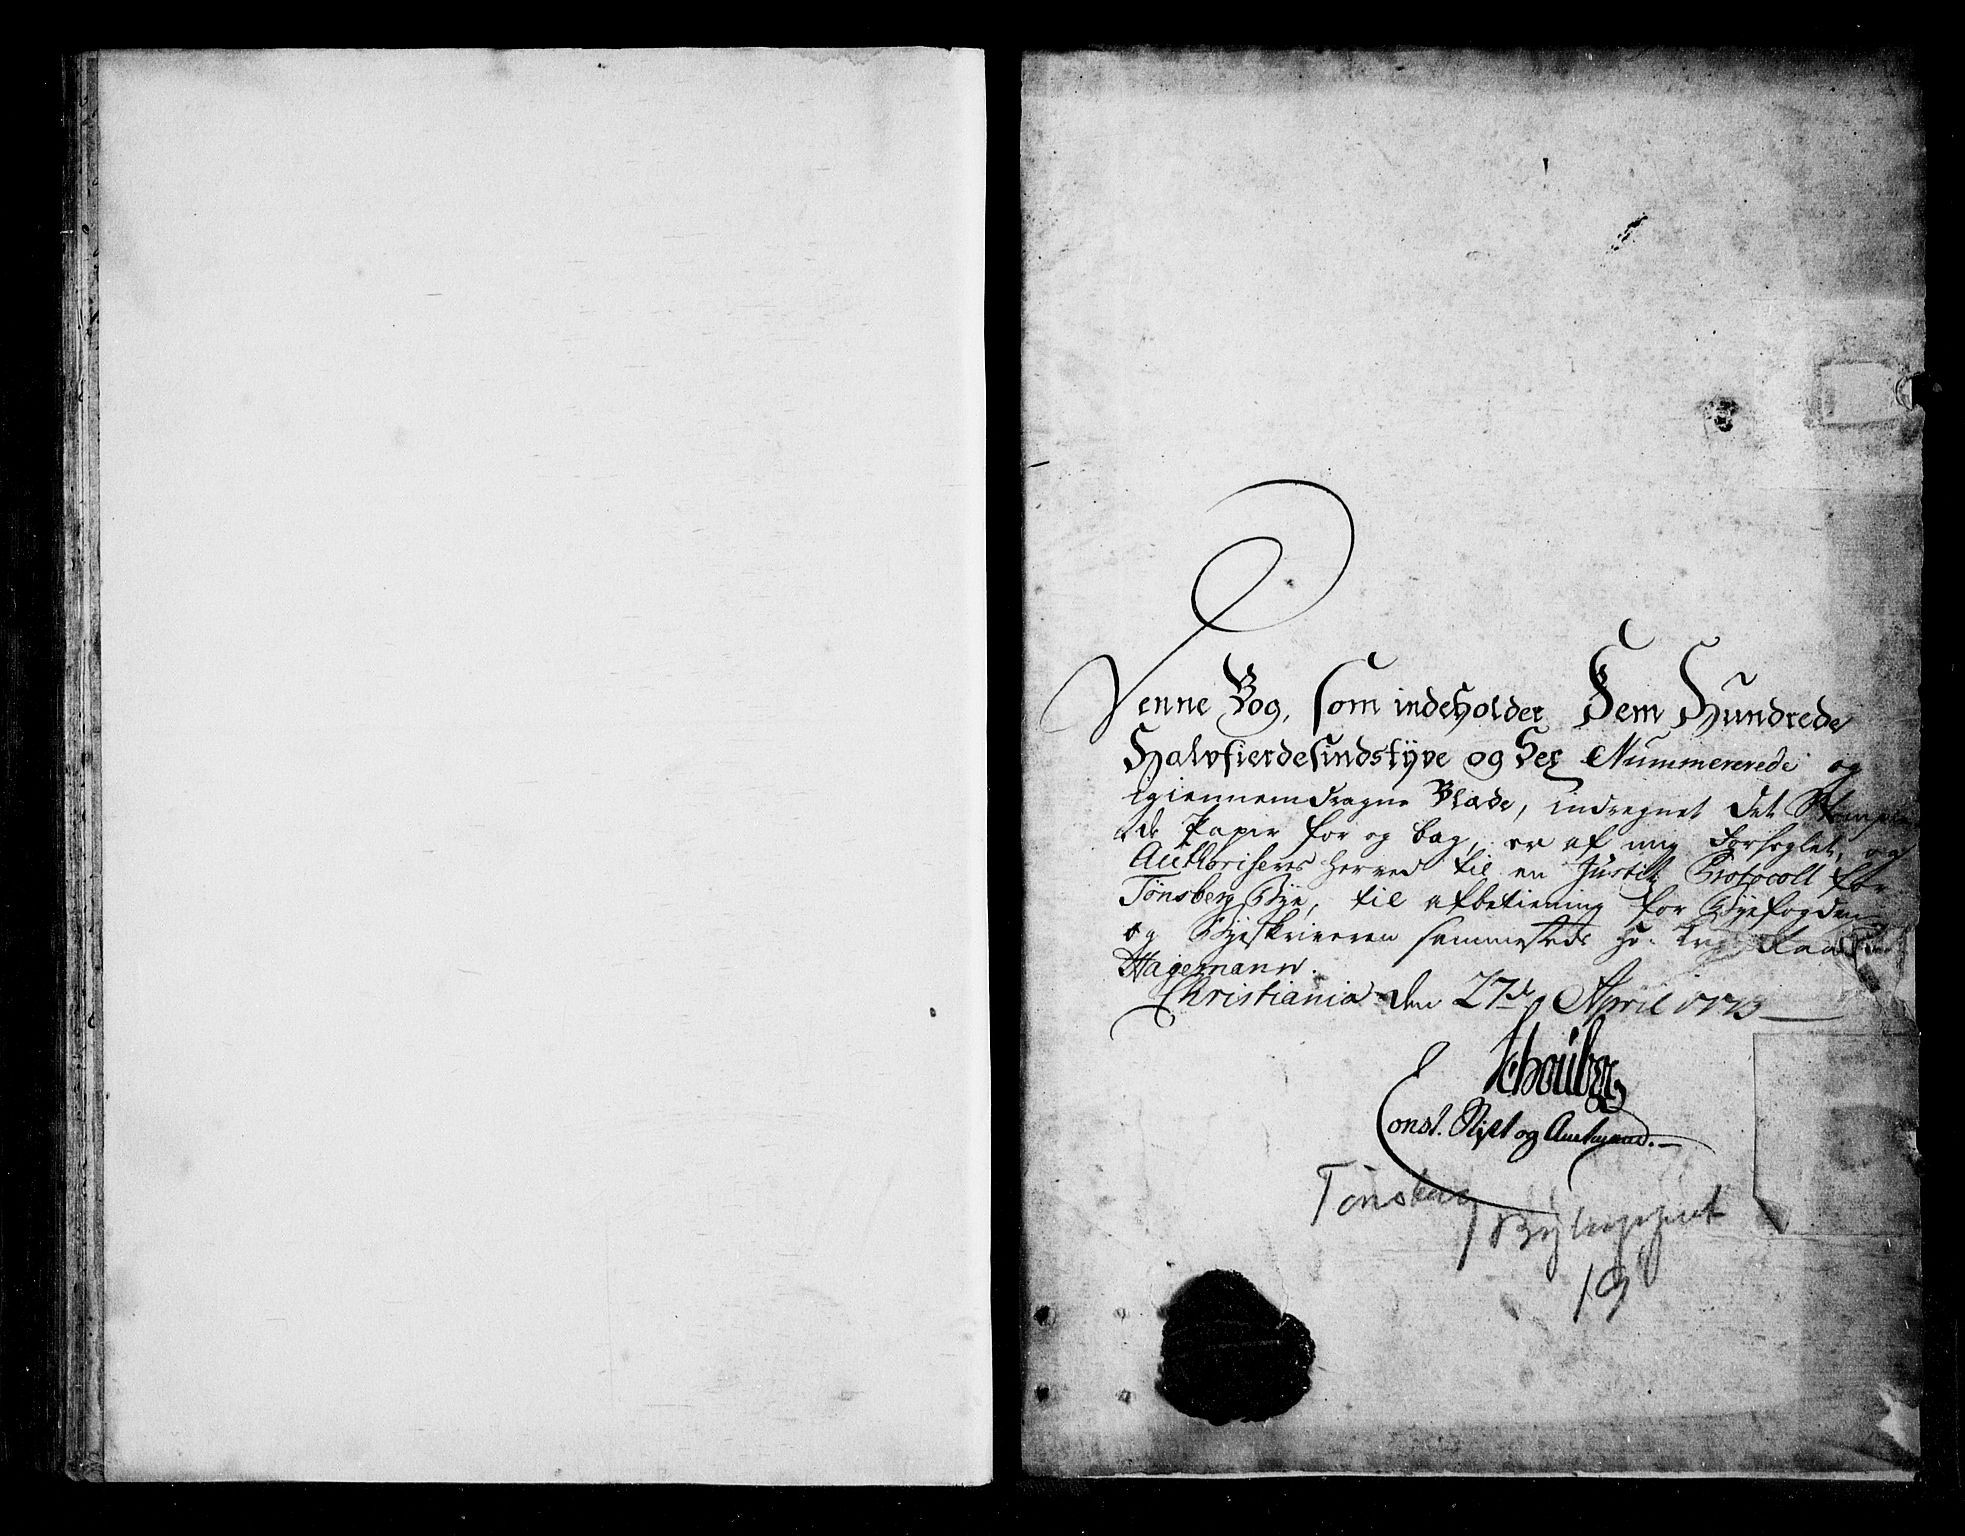 Denne Bog, som indeholder Fem Hundrede
Halvfierdesindstÿve og Sex Nummererede og
igiennemdragne Blade, indregnet det Stemple
de Papir for og bag, er af mig Forseglet, og
Authoriseres herved til en Justitz Protocoll for
Tønsberg Bye, til afbetiening for Byefogden
og Byeskriveren sammesteds Hr.
Hagemann.
Christiania den 27de April 1773
Schouboe
Const. Stift og Amtmand.
Tønsberg
Byfogd
19